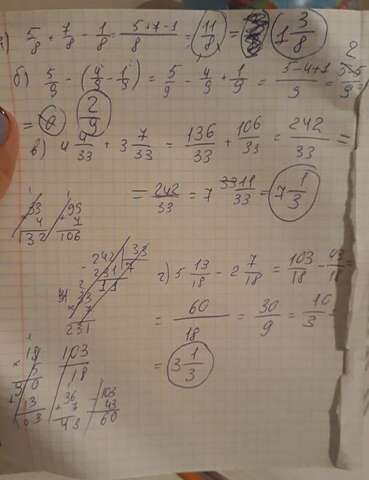 а) 5/8 + 7/8 - 1/8 = (5+7-1)/8 = 11/8 = 1 3/8
б) 5/9 - (4/9 - 1/9) = 5/9 - 4/9 + 1/9 = (5-4+1)/9 =
= 2/9
в) 4 4/33 + 3 7/33 = 136/33 + 106/33 = 242/33 =
= 242/33 = 7 11/33 = 7 1/3
г) 5 13/18 - 2 7/18 = 103/18 - 43/18 =
= 60/18 = 30/9 = 10/3 =
= 3 1/3
33 4 132
99 7 106
242 33
231 7
11
33
7
231
18 103
5 18
90 36 103
13 7 43
103 43 60